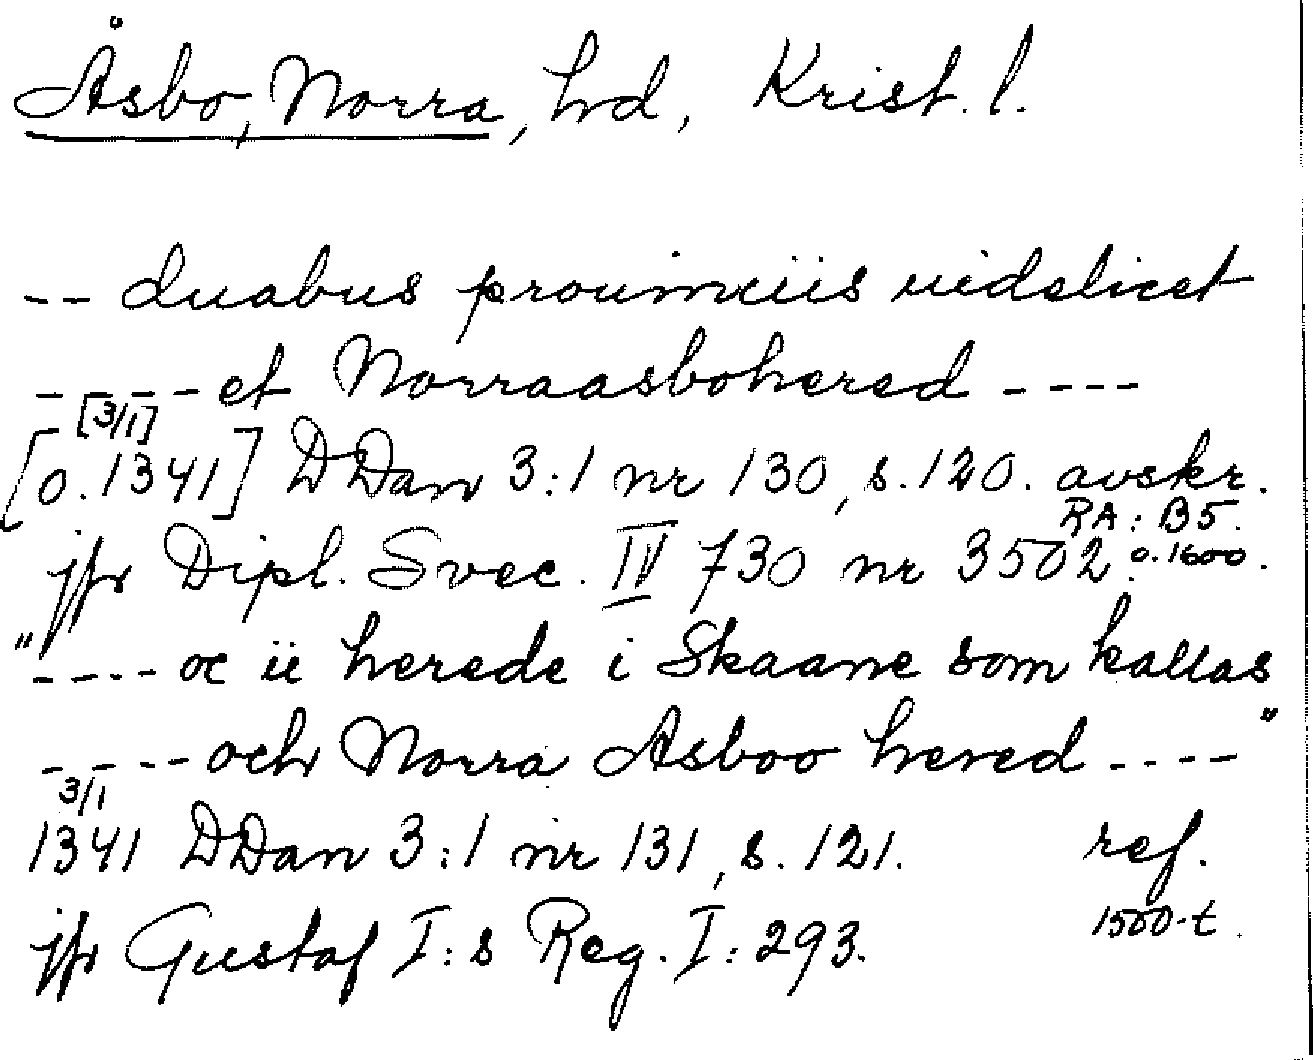 Åsbo, Norra, hd, Krist. l.
-- duabus prouinciis uidelicet
---- et Norraasbohered ----
[3/1]
[o. 1341] DDan 3:1 nr 130, s. 120. avskr.
RA: B5.
jfr Dipl. Svec. IV 730 nr 3502 o. 1600.
"---- oc ii herede i Skaane som kallas
---- och Norra Asboo hered ----"
3/1
1341 DDan 3:1 nr 131, s. 121. ref.
1500-t.
jfr Gustaf I:s Reg. I: 293.